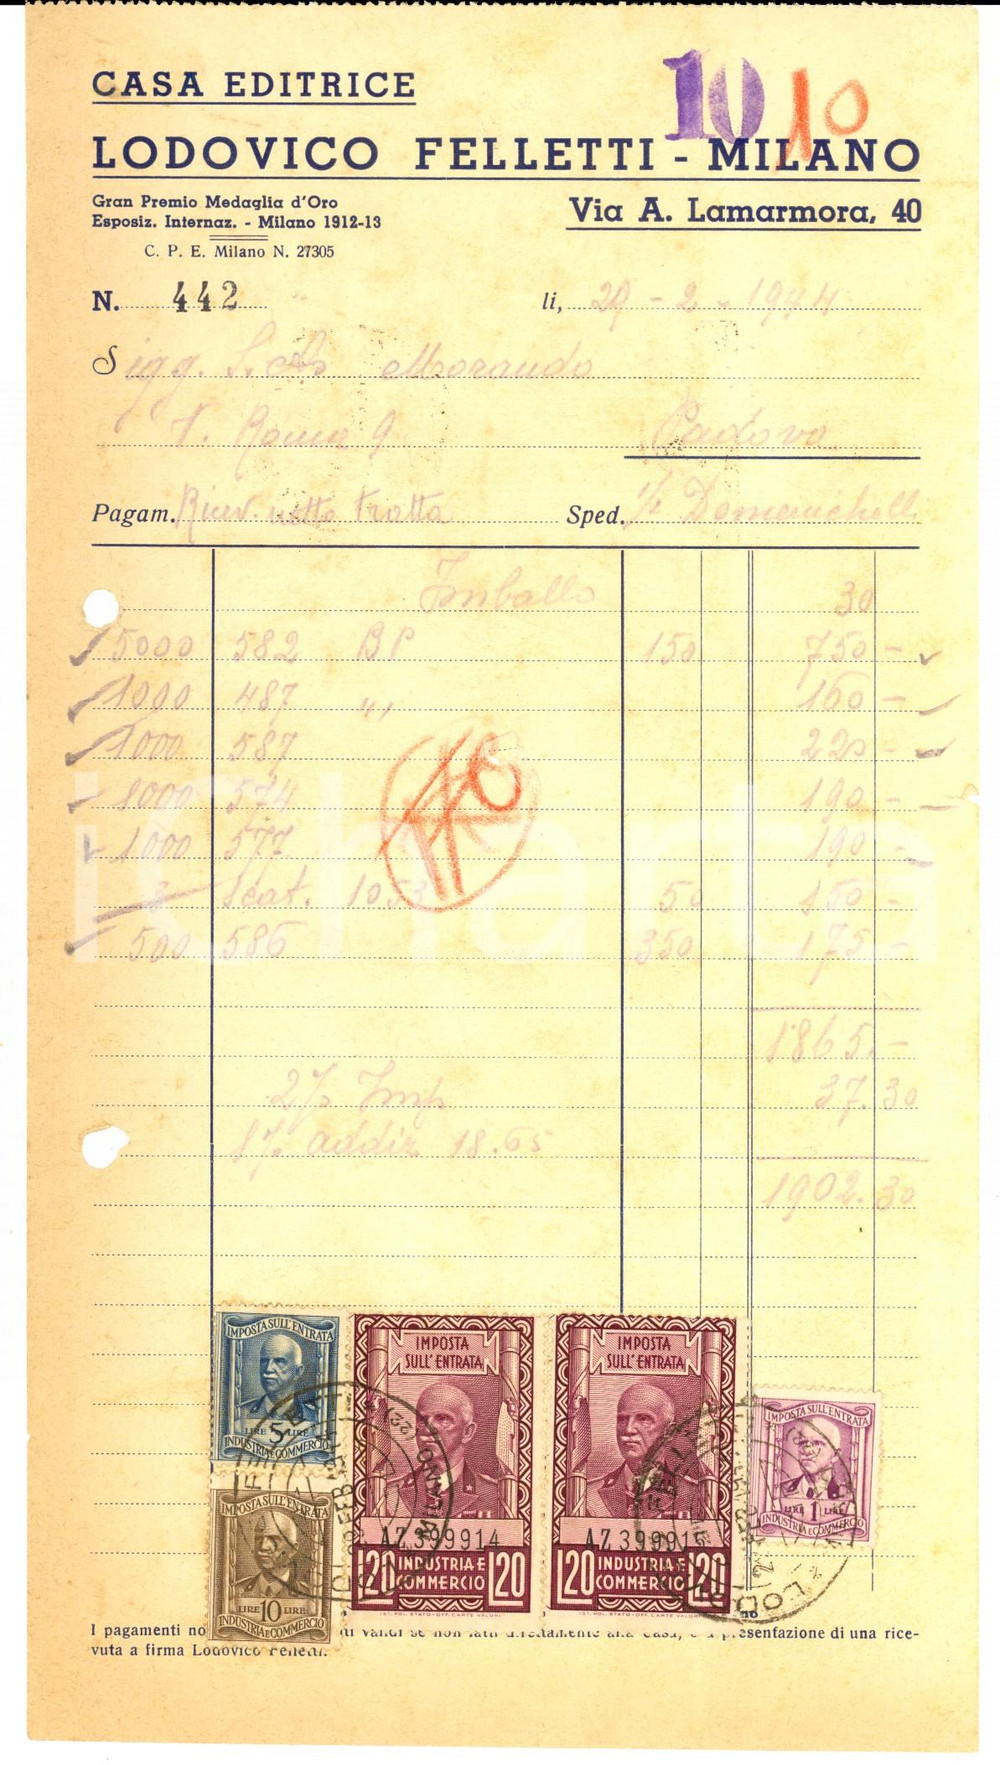 CASA EDITRICE
10 10
LODOVICO FELLETTI - MILANO
Gran Premio Medaglia d'Oro
Esposiz. Internaz. - Milano 1912-13
Via A. Lamarmora, 40
C. P. E. Milano N. 27305
N. 442
li, 29 - 2 - 1944
Sigg. Morando
V. Roma 9 Padova
Pagam. Ricev. netto tratta Sped. Domenichelli
Imballo 30
5000 582 BP 150 750 -
1000 487 " 160 -
1000 587 220 -
1000 574 190 -
1000 577 190 -
3 Scat. 1053 50 150 -
500 586 350 175 -
1865.-
2% Imp 37.30
1% addiz 18.65
1902.30
iCharta
IMPOSTA SULL'ENTRATA
LIRE 5 LIRE
INDUSTRIA E COMMERCIO
IMPOSTA SULL'ENTRATA
AZ399914
120 INDUSTRIA E COMMERCIO 120
IMPOSTA SULL'ENTRATA
AZ39991
120 INDUSTRIA E COMMERCIO 120
IMPOSTA SULL'ENTRATA
LIRE 1 LIRE
INDUSTRIA E COMMERCIO
IMPOSTA SULL'ENTRATA
LIRE 10 LIRE
INDUSTRIA E COMMERCIO
IST. POL. STATO - OFF. CARTE VALORI
I pagamenti no validi se non fatti direttamente alla Casa, presentazione di una rice-
vuta a firma Lodovico Felletti.